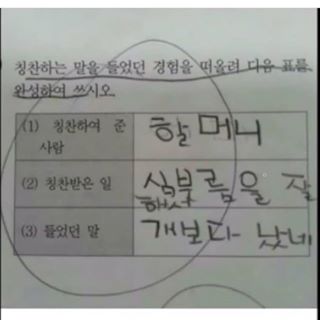 칭찬하는 말을 들었던 경험을 떠올려 다음 표를
완성하여 쓰시오.
(1) 칭찬하여 준
사람
할머니
(2) 칭찬받은 일
심부름을 잘
했
(3) 들었던 말
개보다 낫네